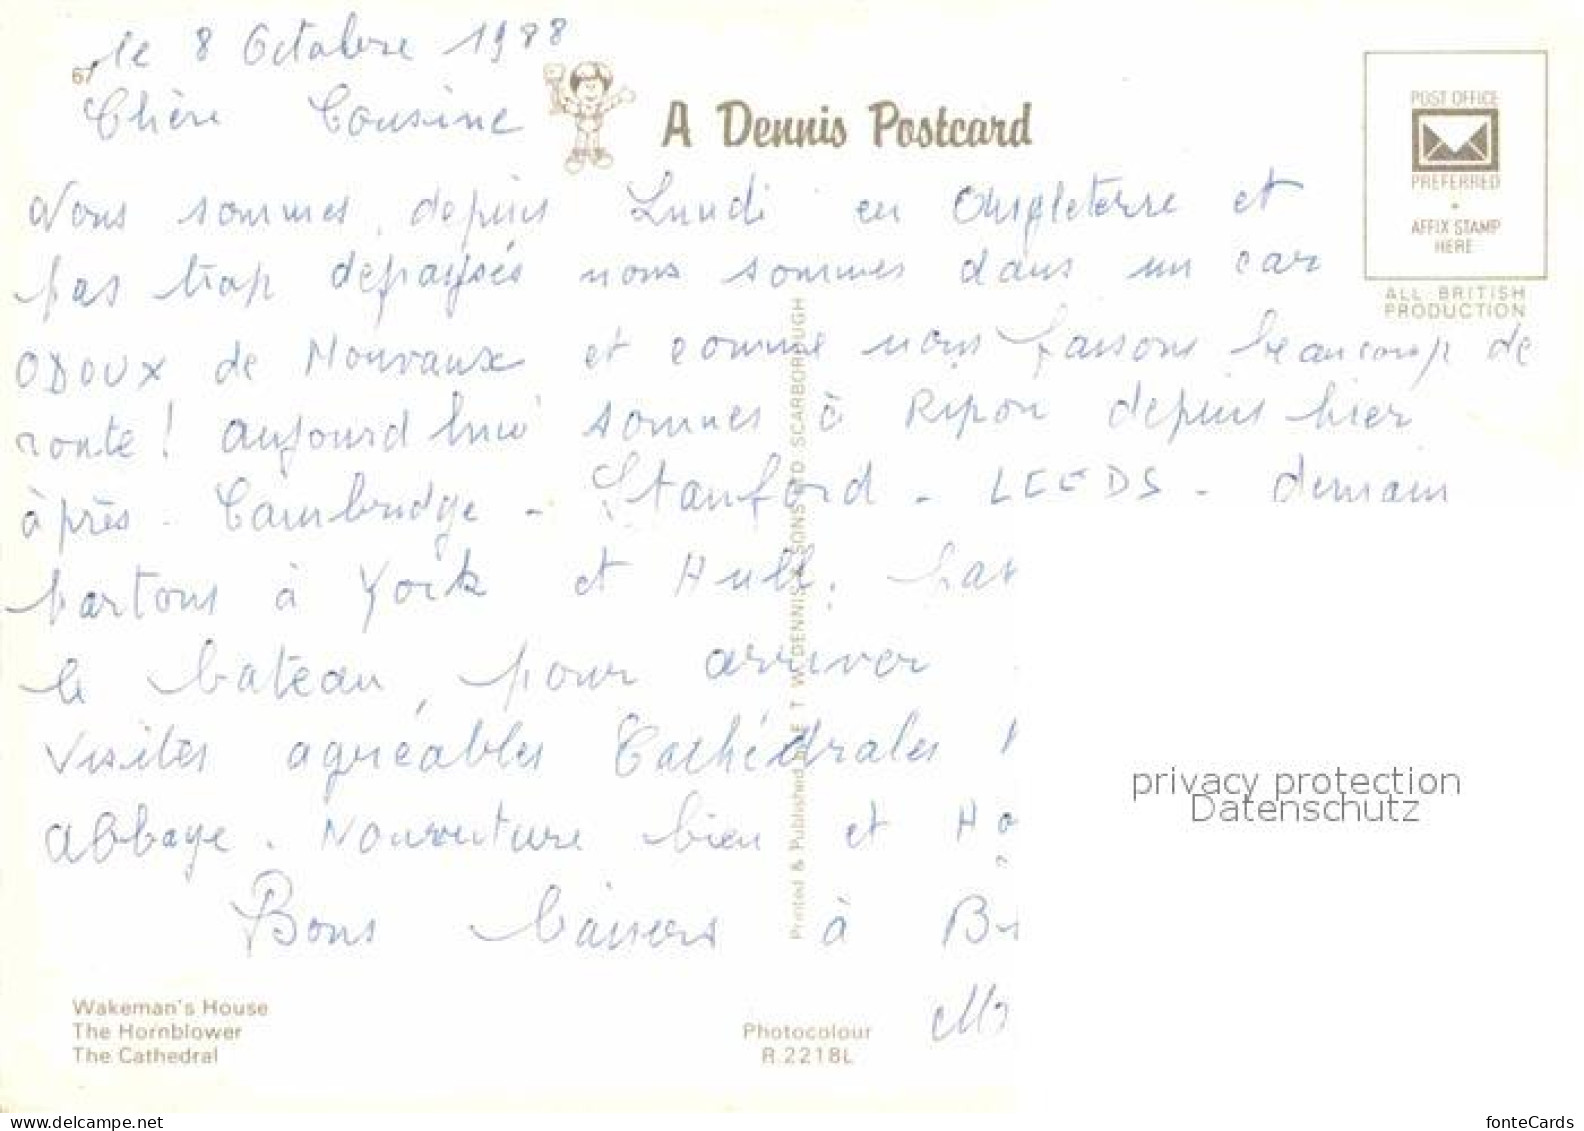 67
le 8 Octobre 1988
Chère Cousine
A Dennis Postcard
POST OFFICE
PREFERRED
AFFIX STAMP
HERE
ALL BRITISH
PRODUCTION
Nous sommes depuis Lundi en Angleterre et
pas trop depaysés nous sommes dans un car
ODOUX de Mouvaux et comme nous faisons beaucoup de
route! aujourd'hui sommes à Ripon depuis hier
après - Cambridge - Stanford - LEEDS - demain
partons à York et Hull.
le bateau, pour arriver
visites agréables Cathédrales
abbaye. Nourriture bien et
Bons baisers à
Printed & Published by E. T. W. DENNIS & SONS LTD SCARBOROUGH
privacy protection
Datenschutz
Wakeman's House
The Hornblower
The Cathedral
Photocolour
R.2218L
www.delcampe.net
fonteCards